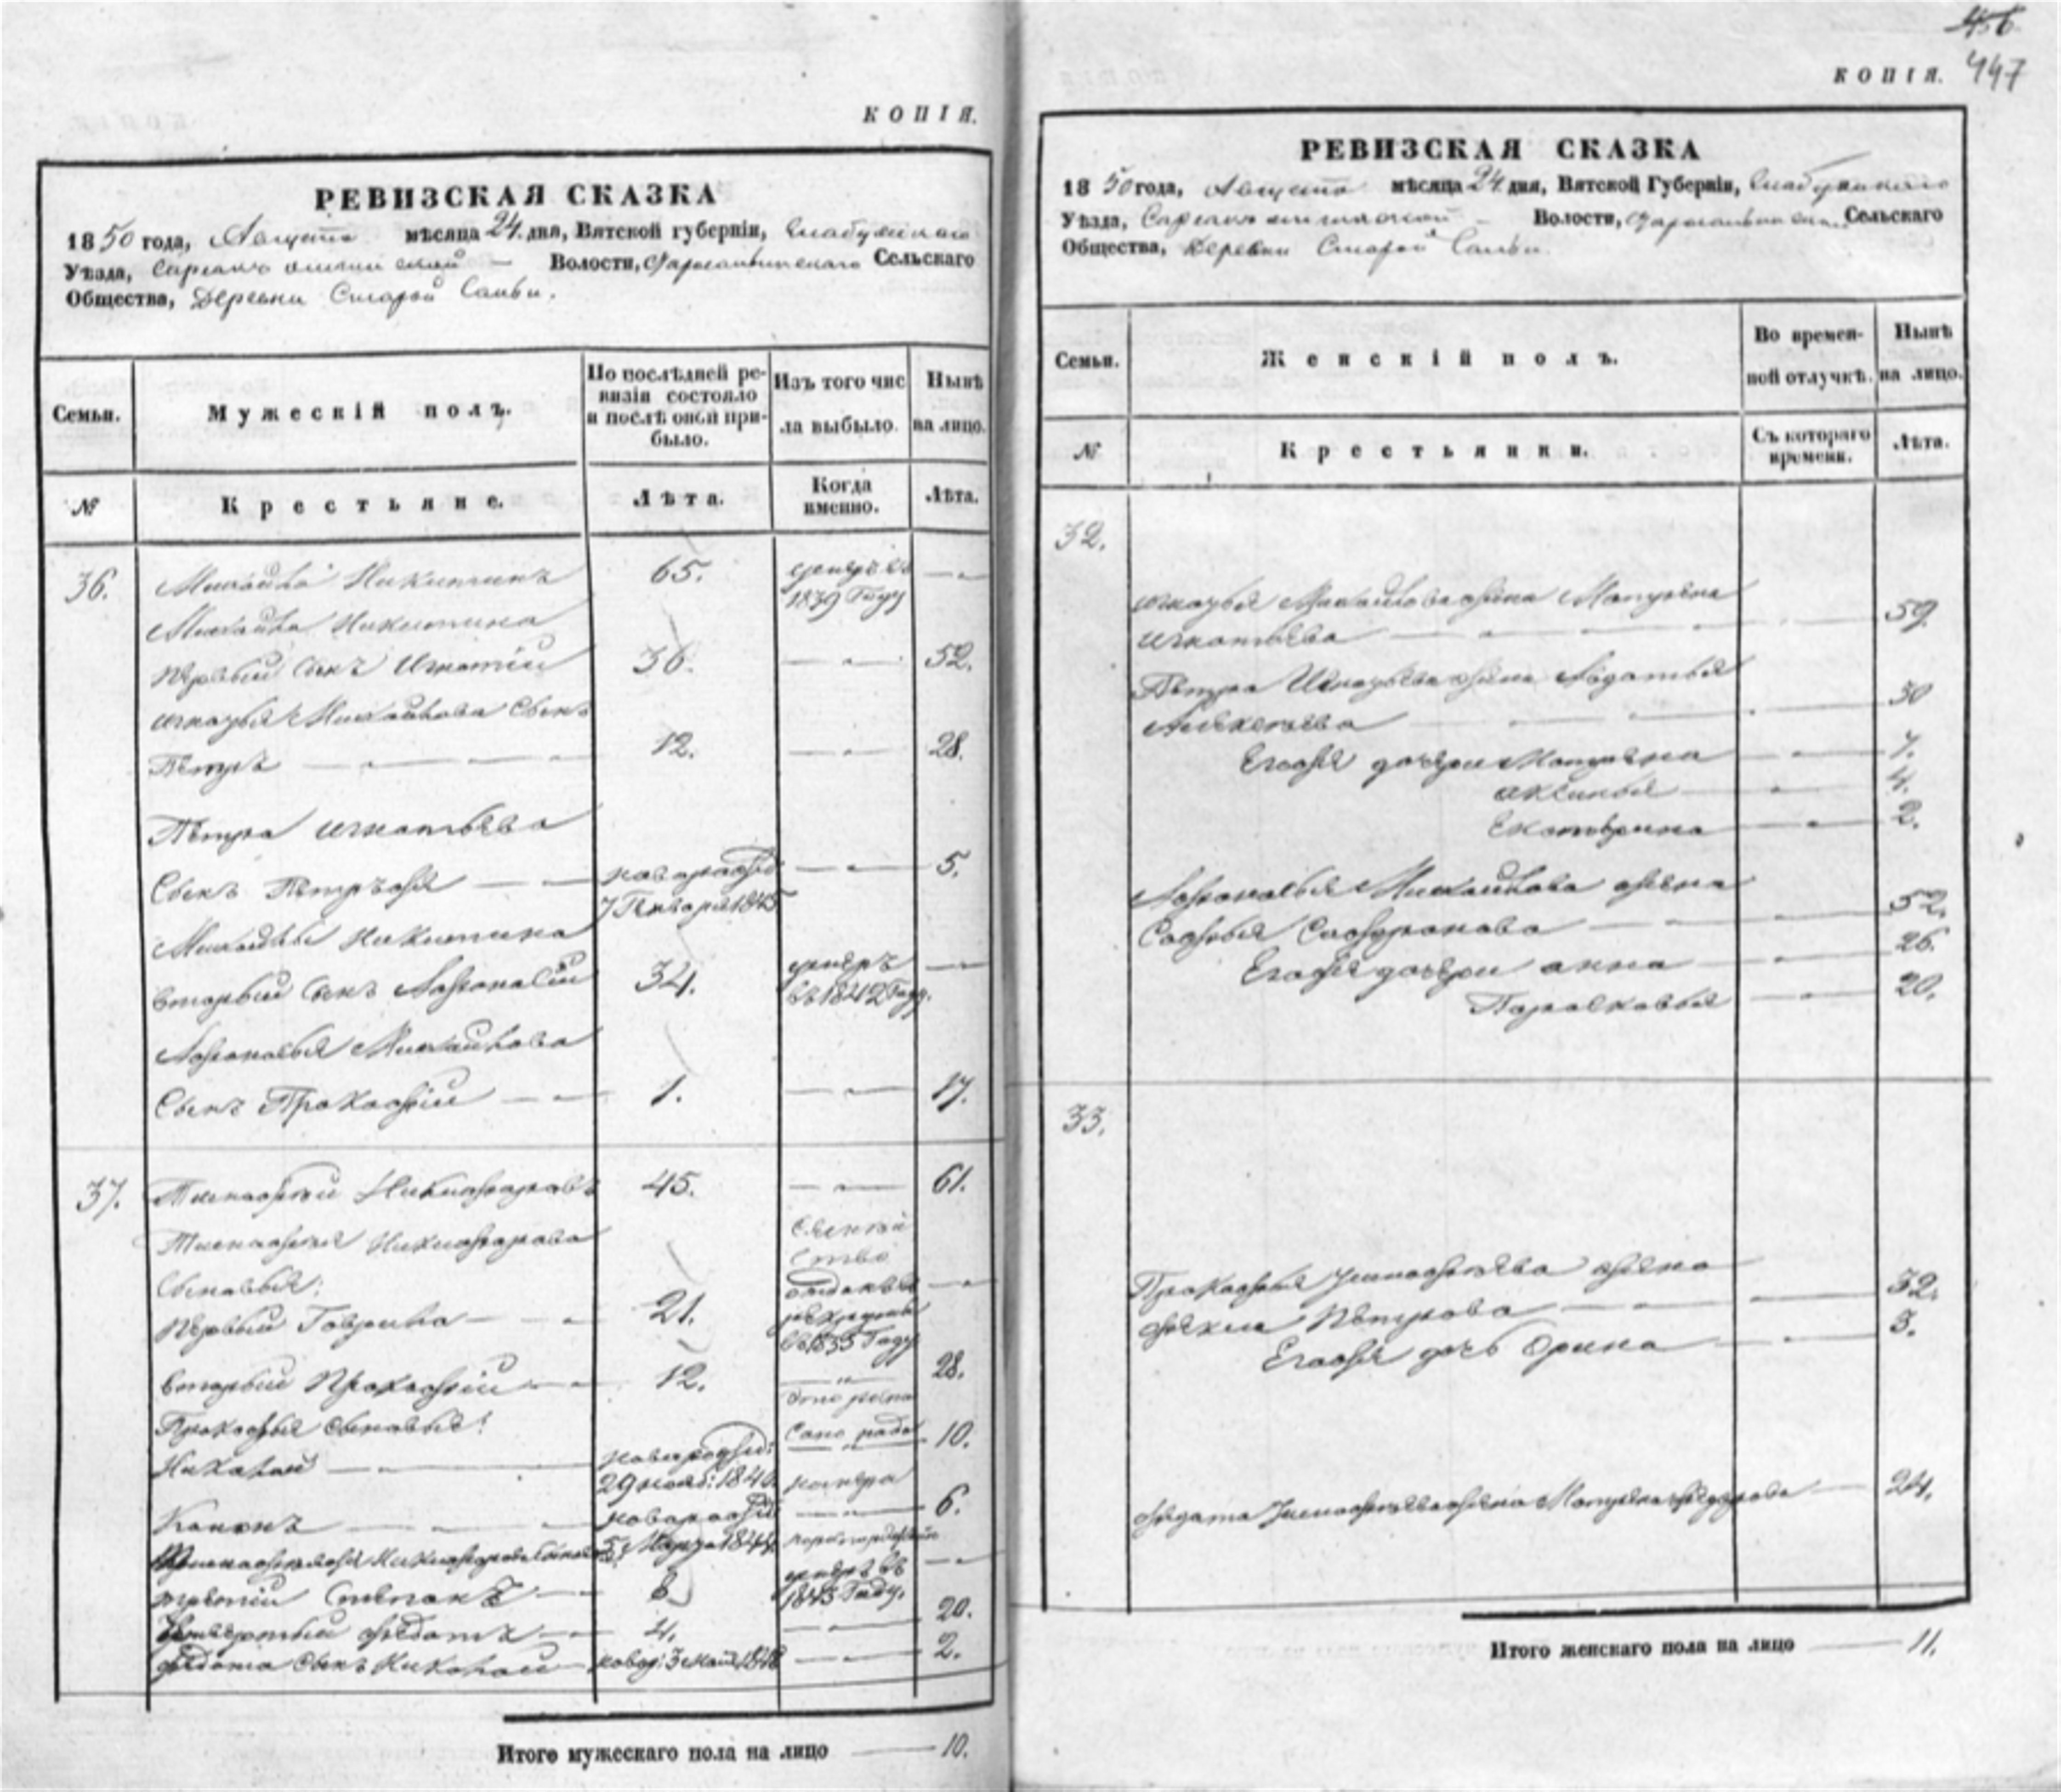 КОПІЯ.
РЕВИЗСКАЯ СКАЗКА
1850 года, Августа мѣсяца 24 дня, Вятской губерніи, Елабужскаго
Уѣзда, Волости, Сельскаго
Общества, Деревни Старой Сальи.
Семьи. Мужескій полъ. По послѣдней ревизіи состояло и послѣ оной прибыло. Изъ того числа выбыло. Нынѣ на лицо.
№ Крестьяне. Лѣта. Когда именно. Лѣта.
36. Михайла Никитинъ 65. умеръ въ 1839 Году
Михайла Никитина
первый сынъ Игнатій 36. 52.
Игнатья Михайлова сынъ
Петръ 12. 28.
Петра Игнатьева
Сынъ новорожд 5.
7 Генваря 1845
Михайлы Никитина
вторый сынъ Афонасій 34. умеръ въ 1842 Году.
Афонасья Михайлова
Сынъ Прокофій 1. 17.
37. Тимофей Никифоровъ 45. 61.
Тимофея Никифорова
Сыновья:
первый Гаврила 21. отданъ въ рекруты въ 1835 Году
вторый Прокофій 12. 28.
Прокофья сыновья:
Николай новорожд: 10.
29 нояб: 1840
новорожд 6.
5 Марта 1844
Тимофея Никифорова
третій Степанъ 8 умеръ въ 1843 Году.
четвертый Федотъ 4. 20.
Федота сынъ Николай новор: 3 мая 1848 2.
Итого мужескаго пола на лицо 10.
447
КОПІЯ.
РЕВИЗСКАЯ СКАЗКА
1850 года, Августа мѣсяца 24 дня, Вятской Губерніи, Елабужскаго
Уѣзда, Волости, Сельскаго
Общества, Деревни Старой Сальи.
Семьи. Женскій полъ. Во временной отлучкѣ. Нынѣ на лицо.
№ Крестьянки. Съ котораго времени. Лѣта.
32.
Игнатья Михайлова жена Матрена
Игнатьева 59.
Петра Игнатьева жена
Алексеева 30
Егожа дочери Матрена 7.
Аксинья 4.
Екатерина 2.
Афонасья Михайлова жена
Софья Сафронова 52.
Егожа дочери Анна 26.
Парасковья 20.
33.
Прокофья Тимофеева жена
Фекла Петрова 32.
Егожа дочь Орина 3.
Федота Тимофеева жена Матрена 24.
Итого женскаго пола на лицо 11.